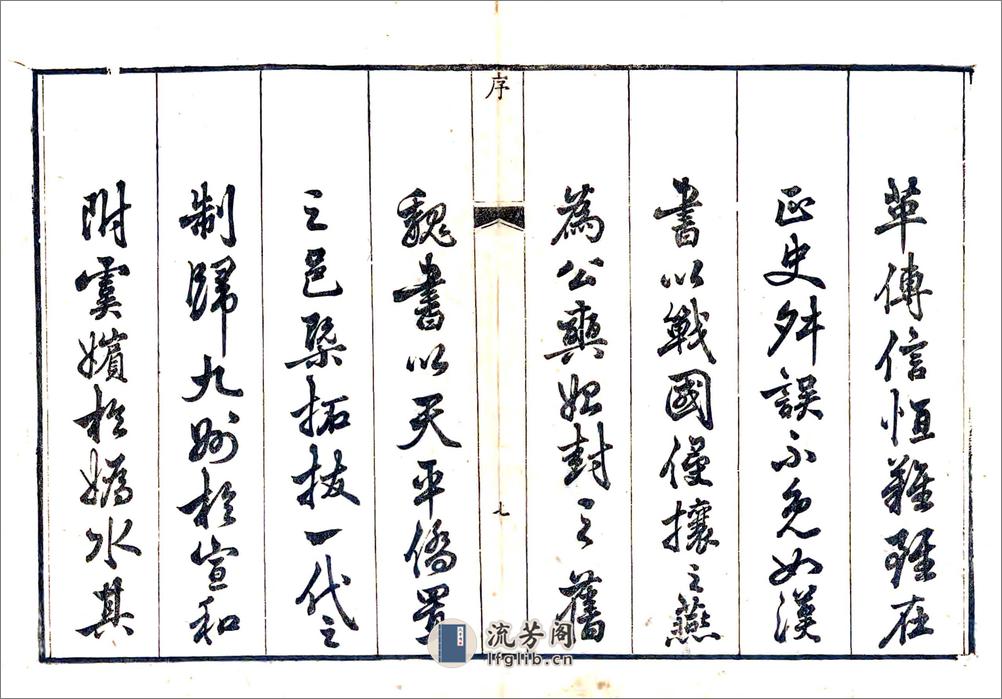 革傳信恒難雖在
正史舛誤不免如漢
書以戰國僅攘之燕
為公奭始封之舊
序
七
魏書以天平僑置
之邑槩拓拔一代之
制歸九州於宣和
附虞嬪於媯水其
流芳阁
lfglib.cn